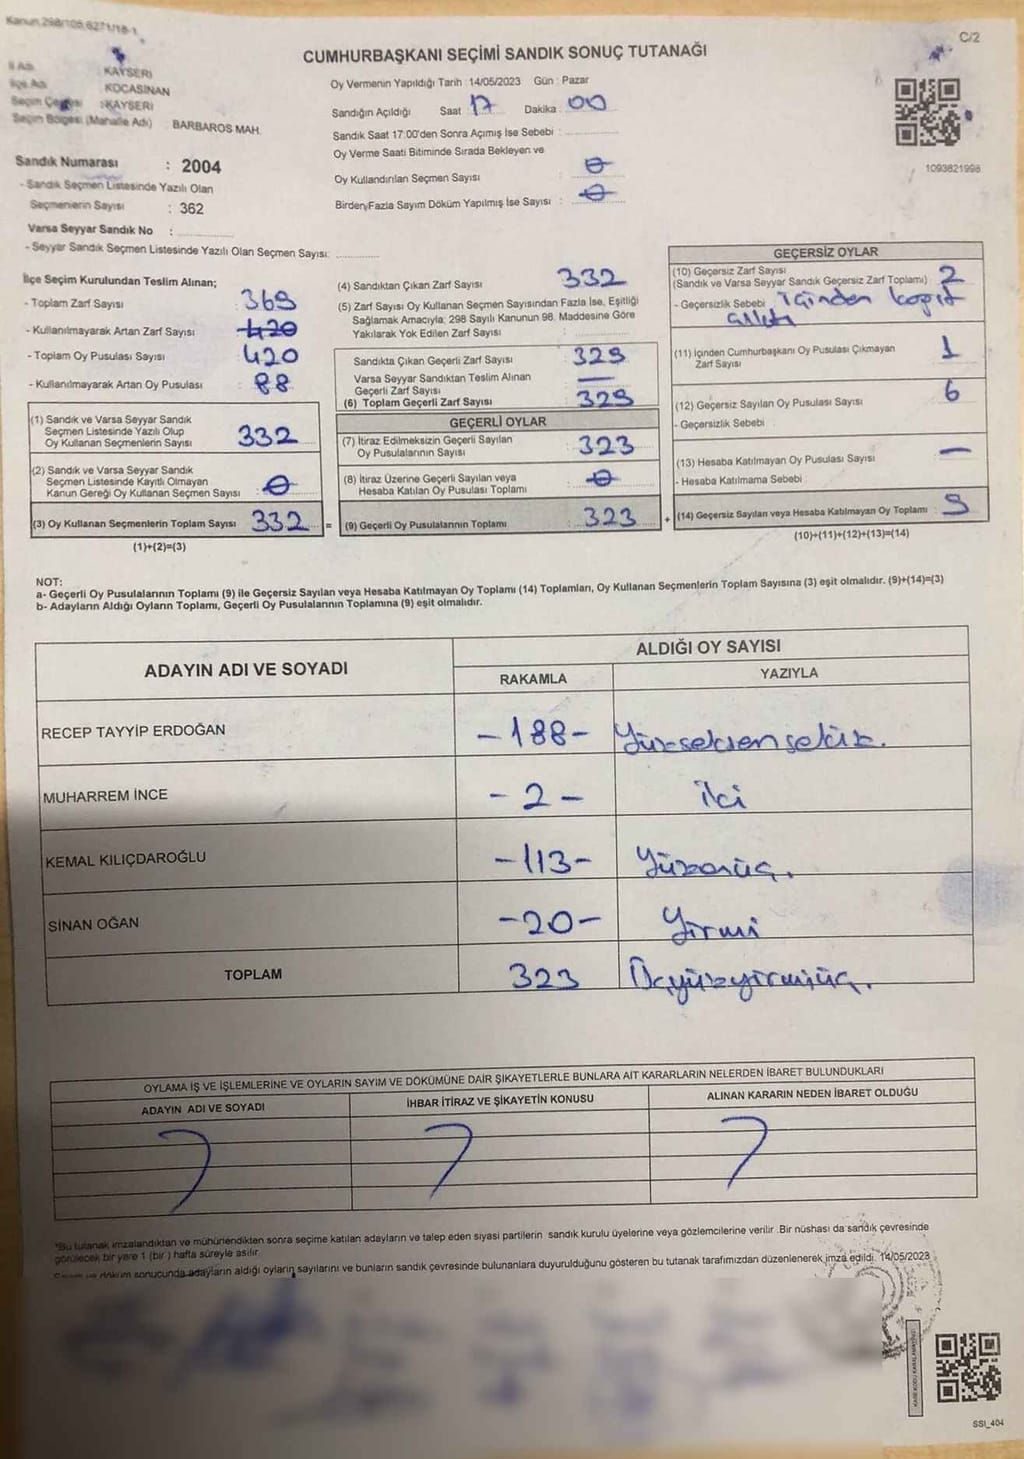 Kanun,298/105,6271/18-1
C/2
CUMHURBAŞKANI SEÇİMİ SANDIK SONUÇ TUTANAĞI
İl Adı : KAYSERİ
İlçe Adı : KOCASİNAN
Seçim Çevresi : KAYSERİ
Seçim Bölgesi (Mahalle Adı) BARBAROS MAH.
Oy Vermenin Yapıldığı Tarih : 14/05/2023 Gün : Pazar
Sandığın Açıldığı Saat 17 Dakika 00
Sandık Saat 17:00'den Sonra Açımış İse Sebebi :
Oy Verme Saati Bitiminde Sırada Bekleyen ve
Oy Kullandırılan Seçmen Sayısı : 0
Birden Fazla Sayım Döküm Yapılmış İse Sayısı : 0
1093621996
Sandık Numarası : 2004
- Sandık Seçmen Listesinde Yazılı Olan
Seçmenlerin Sayısı : 362
Varsa Seyyar Sandık No :
- Seyyar Sandık Seçmen Listesinde Yazılı Olan Seçmen Sayısı:
İlçe Seçim Kurulundan Teslim Alınan;
- Toplam Zarf Sayısı 369
- Kullanılmayarak Artan Zarf Sayısı 420
- Toplam Oy Pusulası Sayısı 420
- Kullanılmayarak Artan Oy Pusulası 88
(1) Sandık ve Varsa Seyyar Sandık
Seçmen Listesinde Yazılı Olup
Oy Kullanan Seçmenlerin Sayısı 332
(2) Sandık ve Varsa Seyyar Sandık
Seçmen Listesinde Kayıtlı Olmayan
Kanun Gereği Oy Kullanan Seçmen Sayısı 0
(3) Oy Kullanan Seçmenlerin Toplam Sayısı 332 =
(1)+(2)=(3)
(4) Sandıktan Çıkan Zarf Sayısı 332
(5) Zarf Sayısı Oy Kullanan Seçmen Sayısından Fazla İse, Eşitliği
Sağlamak Amacıyla; 298 Sayılı Kanunun 98. Maddesine Göre
Yakılarak Yok Edilen Zarf Sayısı :
Sandıkta Çıkan Geçerli Zarf Sayısı : 329
Varsa Seyyar Sandıktan Teslim Alınan
Geçerli Zarf Sayısı : —
(6) Toplam Geçerli Zarf Sayısı : 329
GEÇERLİ OYLAR
(7) İtiraz Edilmeksizin Geçerli Sayılan
Oy Pusulalarının Sayısı : 323
(8) İtiraz Üzerine Geçerli Sayılan veya
Hesaba Katılan Oy Pusulası Toplamı : 0
(9) Geçerli Oy Pusulalarının Toplamı : 323 +
GEÇERSİZ OYLAR
(10) Geçersiz Zarf Sayısı
(Sandık ve Varsa Seyyar Sandık Geçersiz Zarf Toplamı) : 2
- Geçersizlik Sebebi İçinden kağıt
(11) İçinden Cumhurbaşkanı Oy Pusulası Çıkmayan
Zarf Sayısı 1
(12) Geçersiz Sayılan Oy Pusulası Sayısı : 6
- Geçersizlik Sebebi
(13) Hesaba Katılmayan Oy Pusulası Sayısı : —
- Hesaba Katılmama Sebebi
(14) Geçersiz Sayılan veya Hesaba Katılmayan Oy Toplamı : 9
(10)+(11)+(12)+(13)=(14)
NOT:
a- Geçerli Oy Pusulalarının Toplamı (9) ile Geçersiz Sayılan veya Hesaba Katılmayan Oy Toplamı (14) Toplamları, Oy Kullanan Seçmenlerin Toplam Sayısına (3) eşit olmalıdır. (9)+(14)=(3)
b- Adayların Aldığı Oyların Toplamı, Geçerli Oy Pusulalarının Toplamına (9) eşit olmalıdır.
ADAYIN ADI VE SOYADI
ALDIĞI OY SAYISI
RAKAMLA YAZIYLA
RECEP TAYYİP ERDOĞAN -188- Yüzseksensekiz.
MUHARREM İNCE -2- iki
KEMAL KILIÇDAROĞLU -113- Yüzonüç.
SİNAN OĞAN -20- Yirmi
TOPLAM 323 Üçyüzyirmiüç.
OYLAMA İŞ VE İŞLEMLERİNE VE OYLARIN SAYIM VE DÖKÜMÜNE DAİR ŞİKAYETLERLE BUNLARA AİT KARARLARIN NELERDEN İBARET BULUNDUKLARI
ADAYIN ADI VE SOYADI İHBAR İTİRAZ VE ŞİKAYETİN KONUSU ALINAN KARARIN NEDEN İBARET OLDUĞU
*Bu tutanak imzalandıktan ve mühürlendikten sonra seçime katılan adayların ve talep eden siyasi partilerin sandık kurulu üyelerine veya gözlemcilerine verilir .Bir nüshası da sandık çevresinde
görülecek bir yere 1 (bir ) hafta süreyle asılır.
sonucunda adayların aldığı oyların sayılarını ve bunların sandık çevresinde bulunanlara duyurulduğunu gösteren bu tutanak tarafımızdan düzenlenerek imza edildi. 14/05/2023
SSI_404